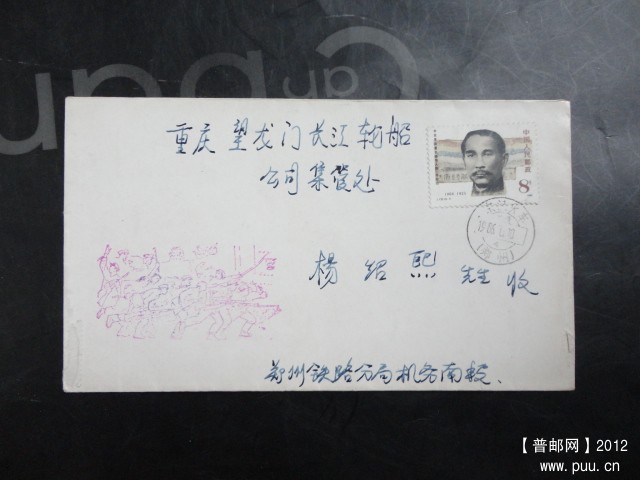 重庆 望龙门长江轮船
公司集管处
杨绍熙 先生 收
郑州铁路分局机务南段.
中国人民邮政
8分
1866-1925
【普邮网】2012
www.puu.cn